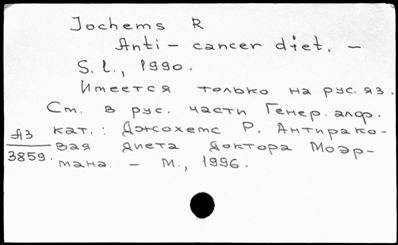 Jochems R
Anti - cancer diet. -
S. l., 1990.
Имеется только на рус. яз.
См. в рус. части Генер. алф.
кат.: Джохемс Р. Антирако-
вая диета доктора Моэр-
мана. - М., 1996.
Я3
3859.